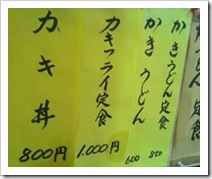 かきうどん定食
850
かきうどん
600
カキフライ定食
1.000円
カキ丼
800円